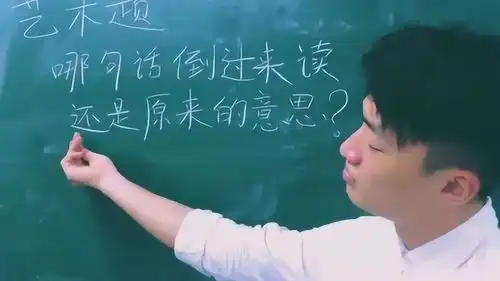 艺术题
哪句话倒过来读
还是原来的意思?